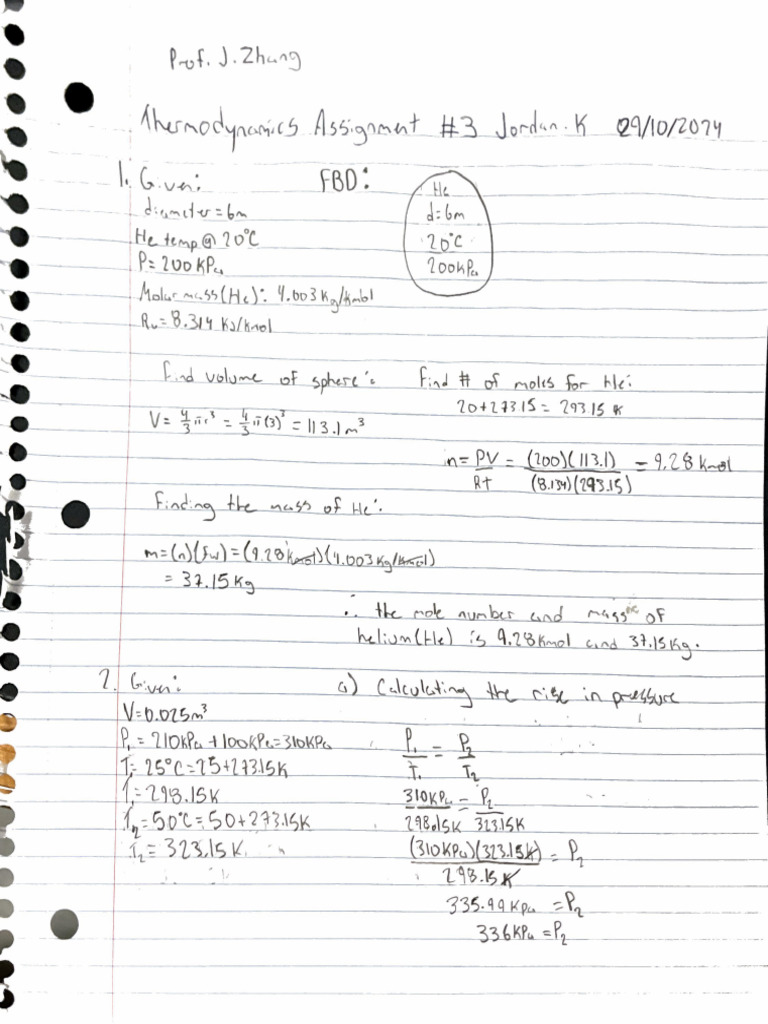 Prof. J. Zhang
Thermodynamics Assignment #3 Jordan.K 29/10/2024
1. Given:
diameter = 6m
He temp @ 20°C
P = 200 KPa
Molar mass (He): 4.003 Kg/Kmol
Ru = 8.314 KJ/Kmol
FBD:
He
d = 6m
20°C
200 kPa
Find volume of sphere:
V = 4/3 πr³ = 4/3 π(3)³ = 113.1 m³
Find # of moles for He:
20 + 273.15 = 293.15 K
n = PV/Rt = (200)(113.1)/(8.134)(293.15) = 9.28 Kmol
Finding the mass of He:
m = (n)(fw) = (9.28 kmol)(4.003 Kg/kmol)
= 37.15 Kg
∴ the mole number and mass of
helium (He) is 9.28 Kmol and 37.15 Kg.
2. Given:
V = 0.025 m³
P₁ = 210 KPa + 100 KPa = 310 KPa
T₁ = 25°C = 25 + 273.15 K
T₁ = 298.15 K
T₂ = 50°C = 50 + 273.15 K
T₂ = 323.15 K
a) Calculating the rise in pressure
P₁/T₁ = P₂/T₂
310 KPa/298.15 K = P₂/323.15 K
(310 KPa)(323.15 K)/298.15 K = P₂
335.99 KPa = P₂
336 KPa = P₂